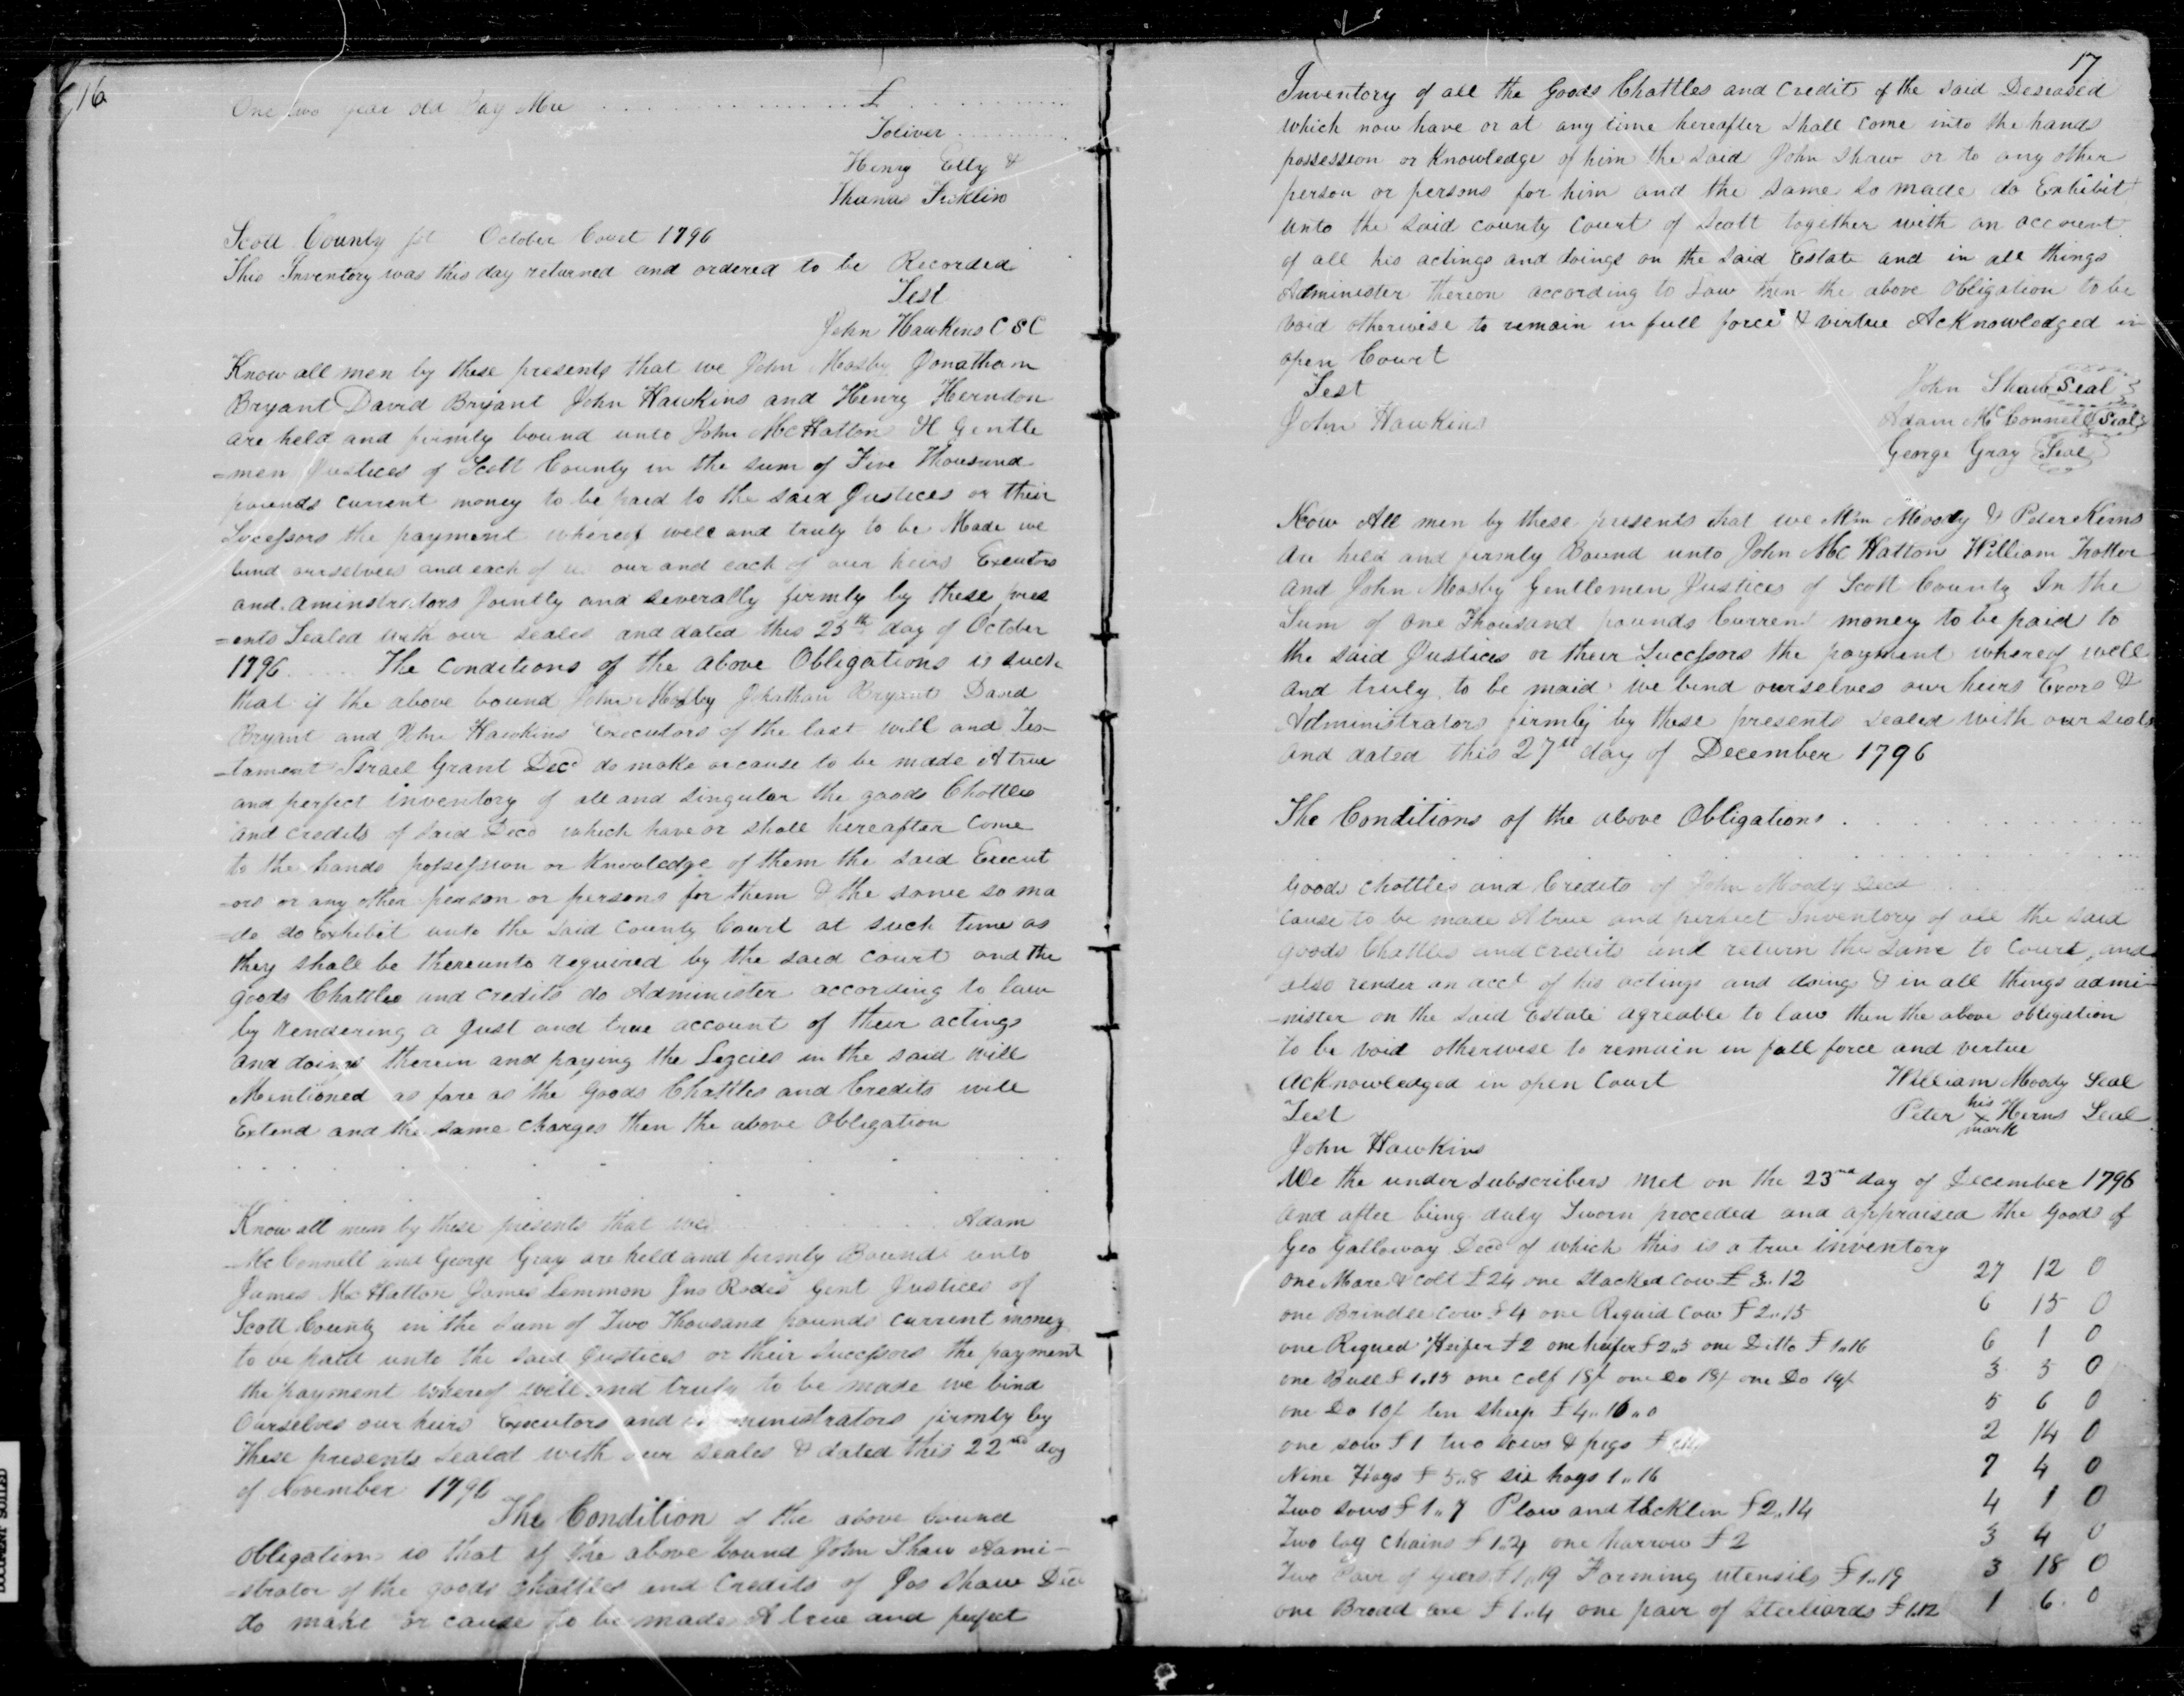 16
One two year old Bay Mre . . . . . . . . £ . . . . . .
Toliver . . . . . . .
Henry Elly &
Thomas Ficklin
Scott County Sct October Court 1796
This Inventory was this day returned and ordered to be Recorded
Test
John Hawkins C S C
Know all men by these presents that we John Mosby Jonathan
Bryant David Bryant John Hawkins and Henry Herndon
are held and firmly bound unto John McHatton &c Gentle
=men Justices of Scott County in the sum of Five Thousand
pounds current money to be paid to the said Justices or their
Sucessors the payment whereof well and truly to be Made we
bind ourselves and each of us our and each of our heirs Executors
and aminstrators Jointly and severally firmly by these pres
=ents Sealed with our seales and dated this 25th day of October
1796 . . . . . The conditions of the above Obligations is such
that if the above bound John Mosby Jonathan Bryant David
Bryant and John Hawkins Executors of the last will and Tes-
-tament Israel Grant Decd do make or cause to be made A true
and perfect inventory of all and singular the goods Chattles
and credits of said Decd which have or shall hereafter come
to the hands possession or knowledge of them the said Execut
-ors or any other person or persons for them & the same so ma
=de do Exhibit unto the said County Court at such time as
they shall be thereunto required by the said court and the
goods Chattles and credits do Administer according to law
by rendering a Just and true account of their actings
and doings therein and paying the Legcies in the said will
Mentioned as fare as the goods Chattles and Credits will
Extend and the same charges then the above Obligation
. . . . . . . . . . .
Know all men by these presents that we . . . . . . Adam
McConnell and George Gray are held and firmly Bound unto
James McHatton James Lemmon Jno Rodes Gent Justices of
Scott County in the sum of Two Thousand pounds current money
to be paid unto the said Justices or their successors the payment
the payment whereof well and truly to be made we bind
Ourselves our heirs Executors and administrators firmly by
these presents sealed with our seales & dated this 22nd day
of November 1796
The Condition of the above bound
obligation is that if the above bound John Shaw Admi-
-strator of the goods chattles and Credits of Jos Shaw Decd
do make or cause to be made A true and perfect
17
Inventory of all the goods Chattles and credits of the said Deseased
which now have or at any time hereafter shall come into the hands
possession or knowledge of him the said John Shaw or to any other
person or persons for him and the same so made do Exhibit
unto the said county court of Scott together with an account
of all his actings and doings on the said Estate and in all things
Administer thereon according to Law then the above Obligation to be
void otherwise to remain in full force & virtue Acknowledged in
open Court
Test John Shaw Seal
John Hawkins Adam McConnell Seal
George Gray Seal
Know All men by these presents that we Wm Moody & Peter Kerns
are held and firmly Bound unto John McHatton William Trotter
and John Mosby Gentlemen Justices of Scott County In the
Sum of one Thousand pounds Current money to be paid to
the said Justices or their Successors the payment whereof well
and truly to be maid we bind ourselves our heirs Exors &
Administrators firmly by these presents sealed with our seals
and dated this 27th day of December 1796
The Conditions of the above Obligations . . . . . .
. . . . . . . . . .
Goods chattles and Credits of John Moody Decd
cause to be made A true and perfect Inventory of all the said
goods Chattles and credits and return the same to Court, and
also render an acct of his actings and doings & in all things admi-
-nister on the said Estate agreable to law then the above obligation
to be void otherwise to remain in full force and vertue
Acknowledged in open Court William Moody Seal
Test Peter his X mark Herns Seal
John Hawkins
We the under subscribers met on the 23rd day of December 1796
and after being duly Sworn proceded and appraised the goods of
Geo Galloway Decd of which this is a true inventory
one Mare & colt £24 one stacked cow £3..12 27 12 0
one Brindle cow £4 one Riguid cow £2..15 6 15 0
one Rigued Heifer £2 one heifer £2..5 one Ditto £1..16 6 1 0
one Bull £1.15 one calf 18/ one Do 18/ one Do 14/ 3 5 0
one Do 10/ ten sheep £4..16..0 5 6 0
one sow £1 two sows & pigs £ 2 14 0
Nine Hogs £5..8 six hogs 1..16 7 4 0
Two sows £1..7 Plow and tacklen £2..14 4 1 0
Two log chains £1.4 one harrow £2 3 4 0
Two Pair of geers £1..19 Farming utensils £1..19 3 18 0
one Broad axe £1..4 one pair of Steeliards £1.12 1 6 0